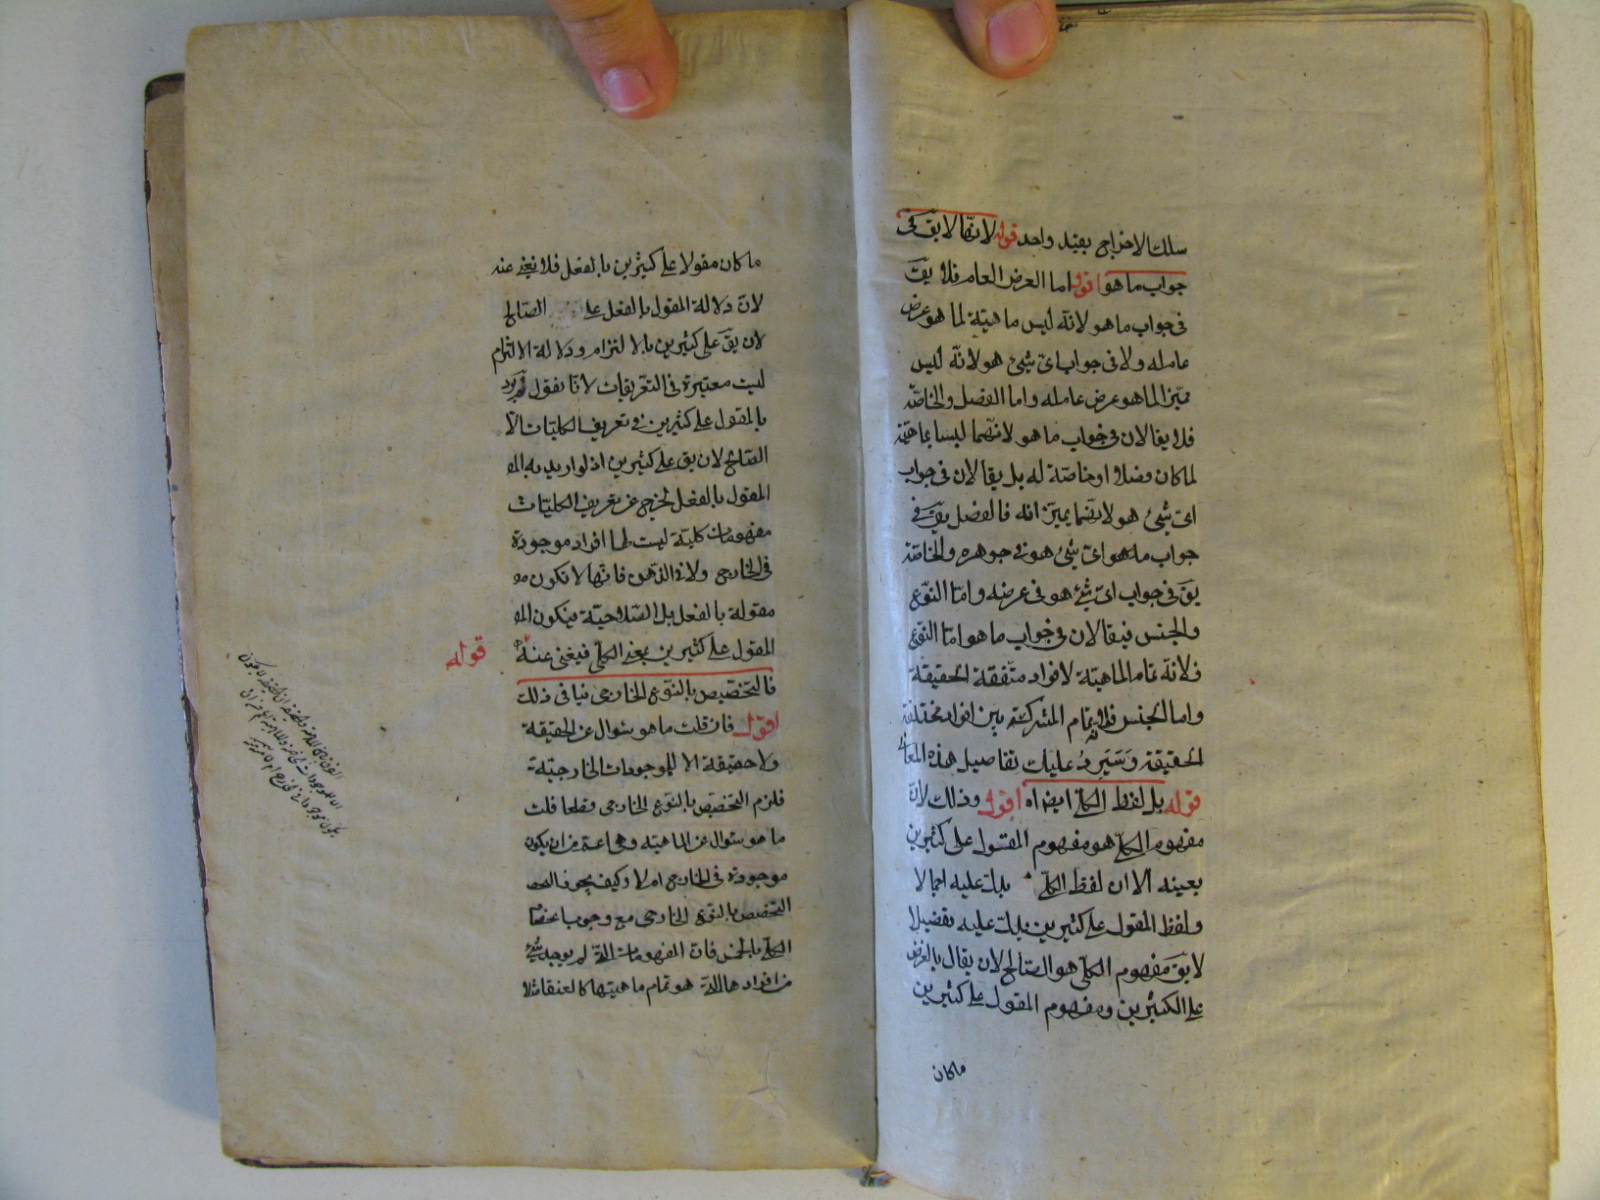 سلك الاخراج بقيد واحد قوله لانها لا يق فى
جواب ما هو اقول اما العرض العام فلا يق
فى جواب ما هو لانه ليس ماهية لما هو عرض
عام له ولا فى جواب اى شئ هو لانه ليس
مميزا لما هو عرض عام له واما الفصل والخاصة
فلا يقالان فى جواب ما هو لانهما ليسا بماهية
لما كان فصلا او خاصة له بل يقالان فى جواب
اى شئ هو لانهما يميزانه فالفصل يق فى
جواب ما هو اى شئ هو فى جوهره والخاصة
يق فى جواب اى شئ هو فى عرضه واما النوع
والجنس فيقالان فى جواب ما هو اما النوع
فلانه تمام الماهية لافراد متفقة الحقيقة
واما الجنس فلانه تمام المشترك بين افراد مختلفة
الحقيقة وسيرد عليك تفاصيل هذه المعانى
قوله بل لفظ الكلى ايضا اه اقول وذلك لان
مفهوم الكلى هو مفهوم المقول على كثيرين
بعينه الا ان لفظ الكلى يدل عليه اجمالا
ولفظ المقول على كثيرين يدل عليه تفصيلا
لا يق مفهوم الكلى هو الصالح لان يقال بالفرض
على الكثيرين ومفهوم المقول على كثيرين
ماكان
ما كان مقولا على كثيرين بالفعل فلا يغنى عنه
لان دلالة المقول بالفعل على الصالح
لان يق على كثيرين بالالتزام ودلالة الالتزام
ليست معتبرة فى التعريفات لانا نقول لم يرد
بالمقول على كثيرين فى تعريف الكليات الا
الصالح لان يق على كثيرين اذ لو اريد به الم
المقول بالفعل لخرج عن تعريف الكليات
مفهومات كلية ليست لها افراد موجودة
فى الخارج ولا فى الذهن فانها لا تكون مو
مقولة بالفعل بل الصلاحية فيكون الم
المقول على كثيرين بمعنى الكلى فيغنى عنه
قوله
فالتخصيص بالنوع الخارجى ينافى ذلك
اقول فان قلت ما هو سؤال عن الحقيقة
ولا حقيقة الا للموجودات الخارجية
فلزم التخصيص بالنوع الخارجى قطعا قلت
ما هو سؤال عن الماهية وهى اعم من ان يكون
موجودة فى الخارج ام لا وكيف يجوز التص
التخصيص بالنوع الخارجى مع وجوب انحصار
الكلى بالخمس فان المفهومات التى لم يوجد شئ
من افرادها التى هو تمام ماهيتها كالعنقا مثلا